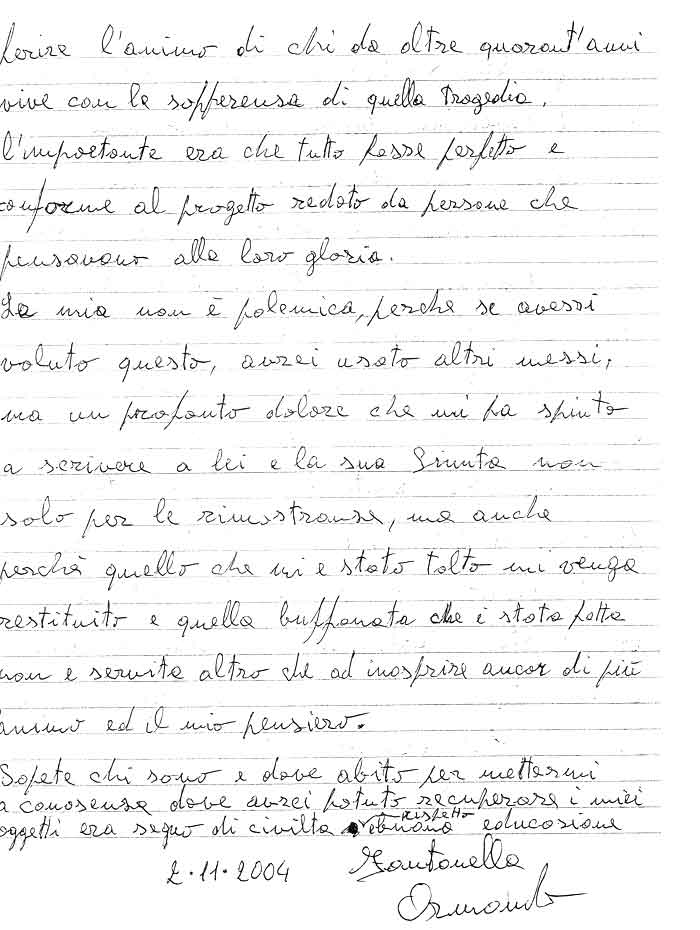 ferire l'animo di chi da oltre quarant'anni
vive con la sofferensa di quella Tragedia.
l'importante era che tutto fosse perfetto e
conforme al progetto redato da persone che
pensavano alla loro gloria.
La mia non è polemica, perche se avessi
voluto questo, avrei usato altri messi,
ma un profonto dolore che mi fa spinto
a scrivere a lei e la sua Giunta non
solo per le rimostranse, ma anche
perchè quello che mi e stato tolto mi venga
restituito e quella buffonata che è stata fatta
non e servita altro che ad inasprire ancor di più
l'animo ed il mio pensiero.
Sapete chi sono e dove abito per mettermi
a conosensa dove avrei potuto recuperare i miei
oggetti era segno di civilta rispetto e buona educasione
2.11.2004 Fantonella
Ormando